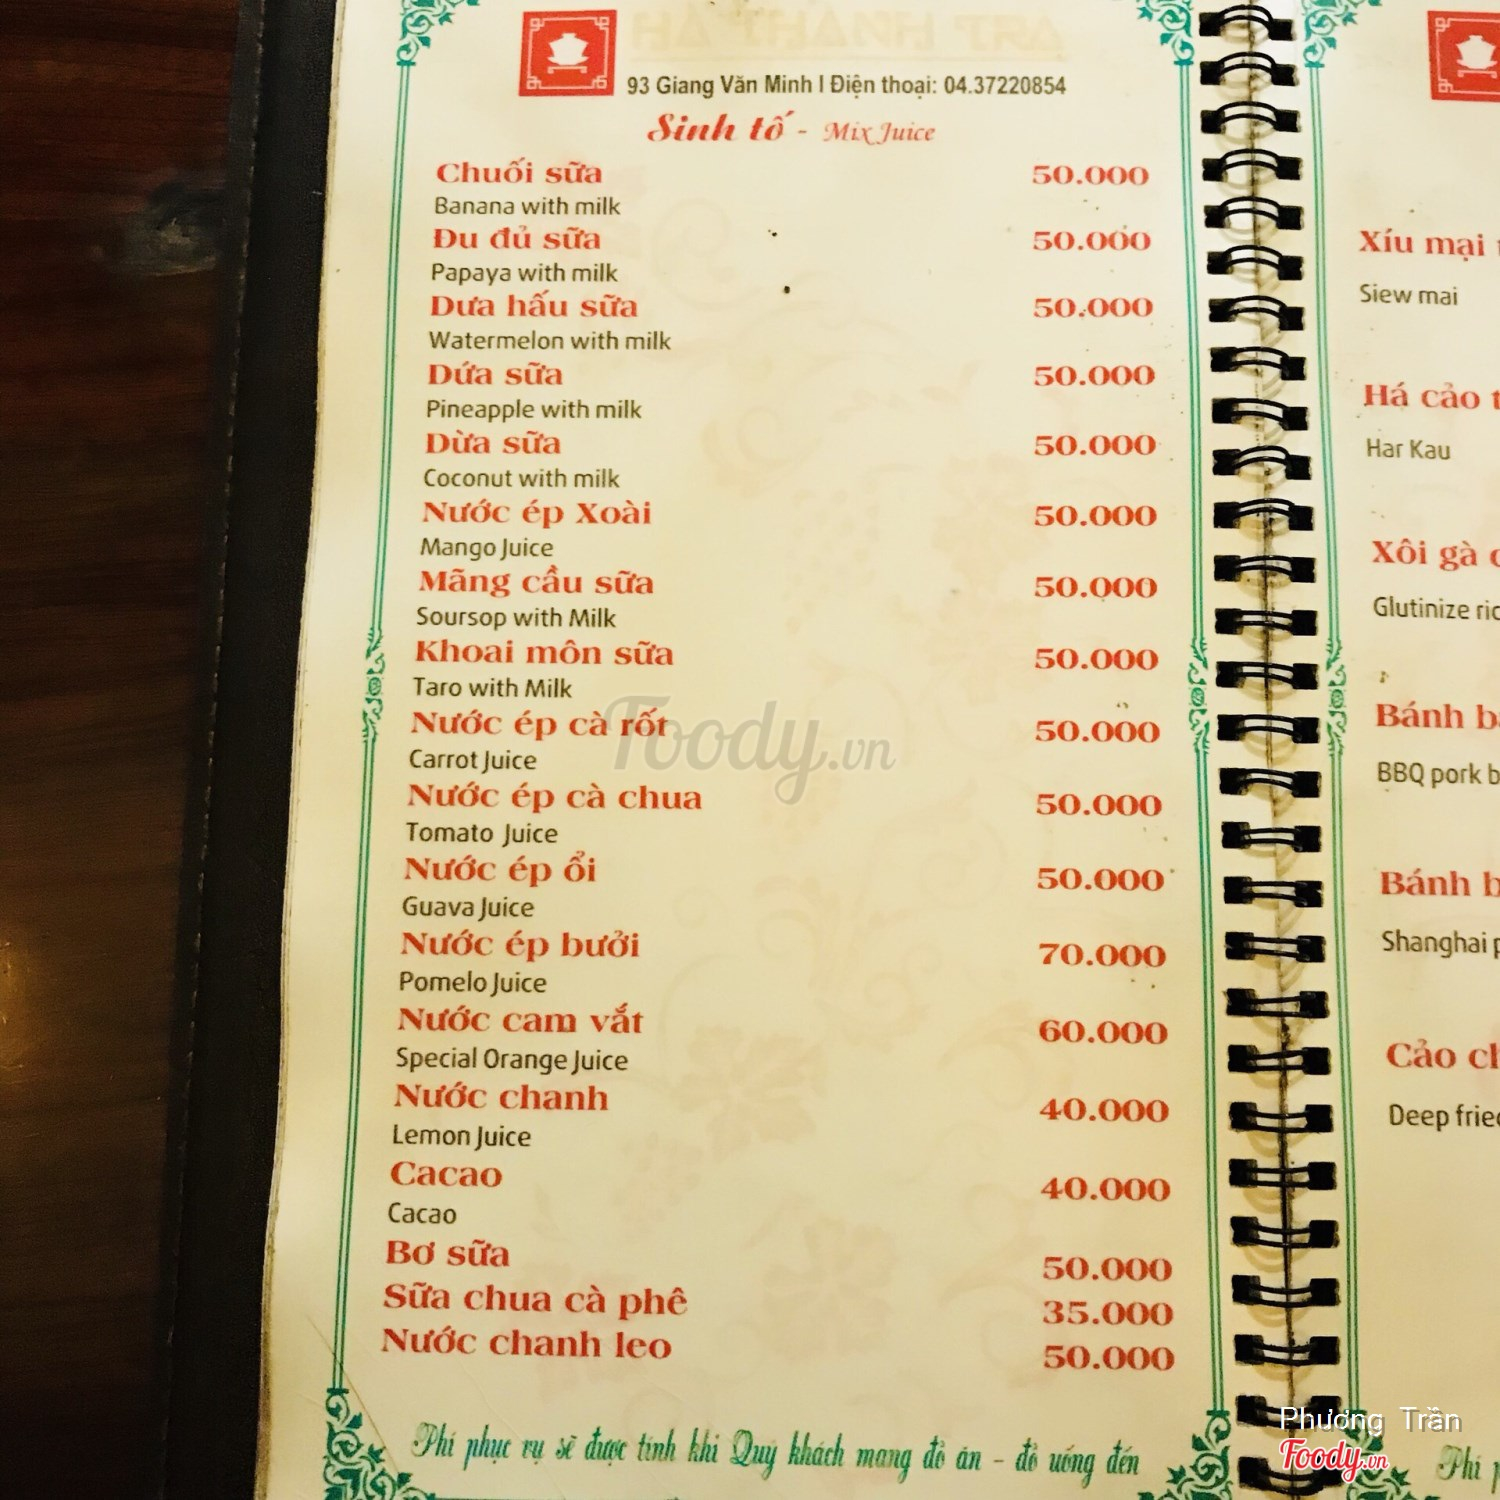 HÀ THÀNH TRÀ
93 Giang Văn Minh I Điện thoại: 04.37220854
Sinh tố - Mix Juice
Chuối sữa 50.000
Banana with milk
Đu đủ sữa 50.000
Papaya with milk
Dưa hấu sữa 50.000
Watermelon with milk
Dứa sữa 50.000
Pineapple with milk
Dừa sữa 50.000
Coconut with milk
Nước ép Xoài 50.000
Mango Juice
Mãng cầu sữa 50.000
Soursop with Milk
Khoai môn sữa 50.000
Taro with Milk
Nước ép cà rốt 50.000
Carrot Juice
Nước ép cà chua 50.000
Tomato Juice
Nước ép ổi 50.000
Guava Juice
Nước ép bưởi 70.000
Pomelo Juice
Nước cam vắt 60.000
Special Orange Juice
Nước chanh 40.000
Lemon Juice
Cacao 40.000
Cacao
Bơ sữa 50.000
Sữa chua cà phê 35.000
Nước chanh leo 50.000
Phí phục vụ sẽ được tính khi Quý khách mang đồ ăn - đồ uống đến
Xíu mại
Siew mai
Há cảo
Har Kau
Xôi gà
Glutinize
Bánh
BBQ pork
Bánh
Shanghai
Cảo
Deep
Phí
Foody.vn
Phương Trần
Foody.vn